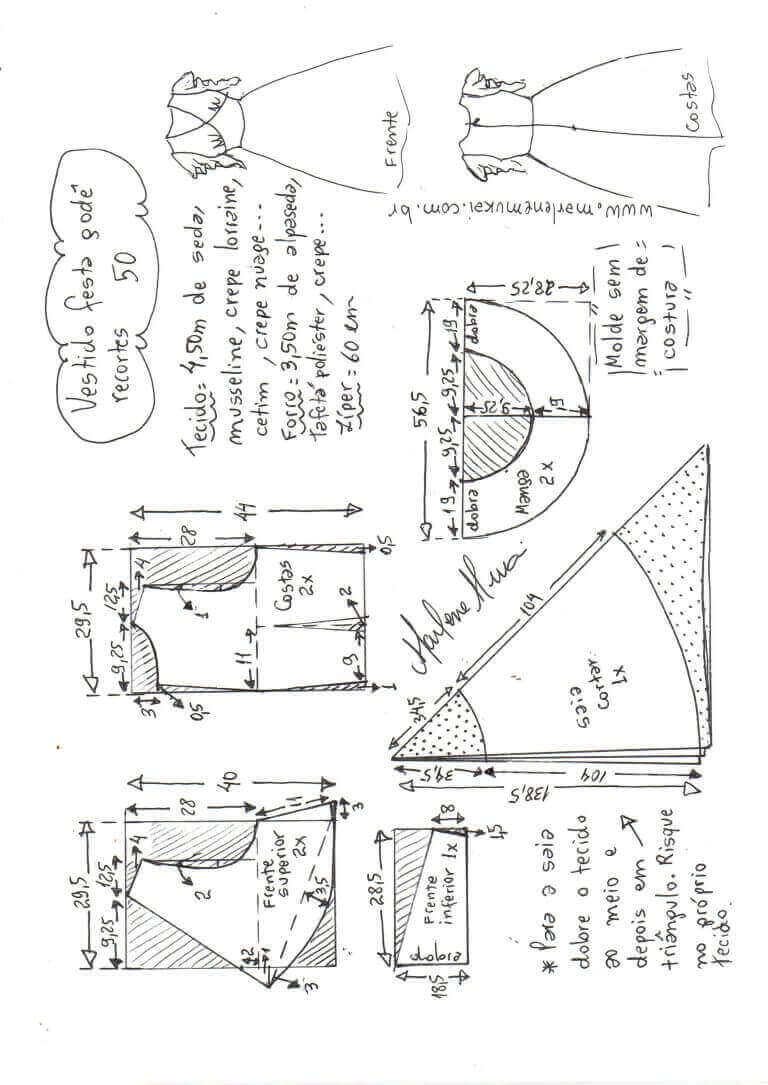 Vestido festa godê
recortes 50
Tecido= 4,50m de seda,
musseline, crepe lorraine,
cetim, crepe nuage...
Forro=3,50m de alpaseda,
tafetá poliester, crepe...
Zíper= 60 cm
Frente
Costas
www.marlenemukai.com.br
29,5
9,25
12,5
4
28
40
2
Frente
superior
2x
11
3
3,5
2
1
3
29,5
9,25
12,5
4
28
44
3
0,5
1
11
Costas
2x
9
2
1
0,5
56,5
19
9,25
9,25
19
dobra
dobra
9,25
19
28,25
Manga
2x
Molde sem
margem de
costura
28,5
Frente
inferior 1x
dobra
18,5
8
1,5
34,5
104
34,5
104
138,5
saia
cortar
1x
* Para a saia
dobre o tecido
ao meio e
depois em
triângulo. Risque
no próprio
tecido.